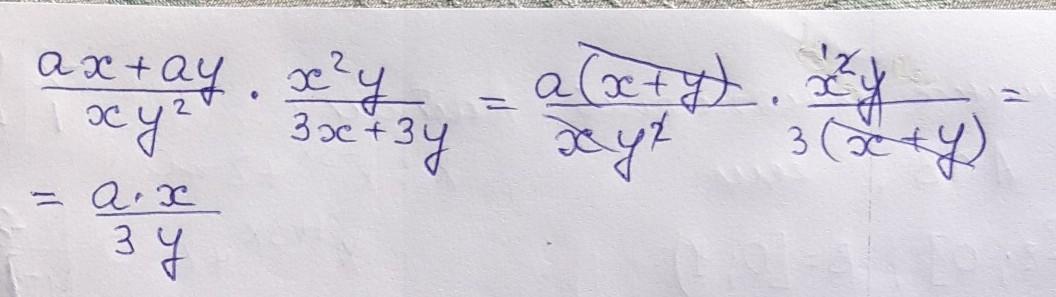 (ax+ay)/(xy²) · (x²y)/(3x+3y) = (a(x+y))/(xy²) · (x²y)/(3(x+y)) =
= (a·x)/(3y)